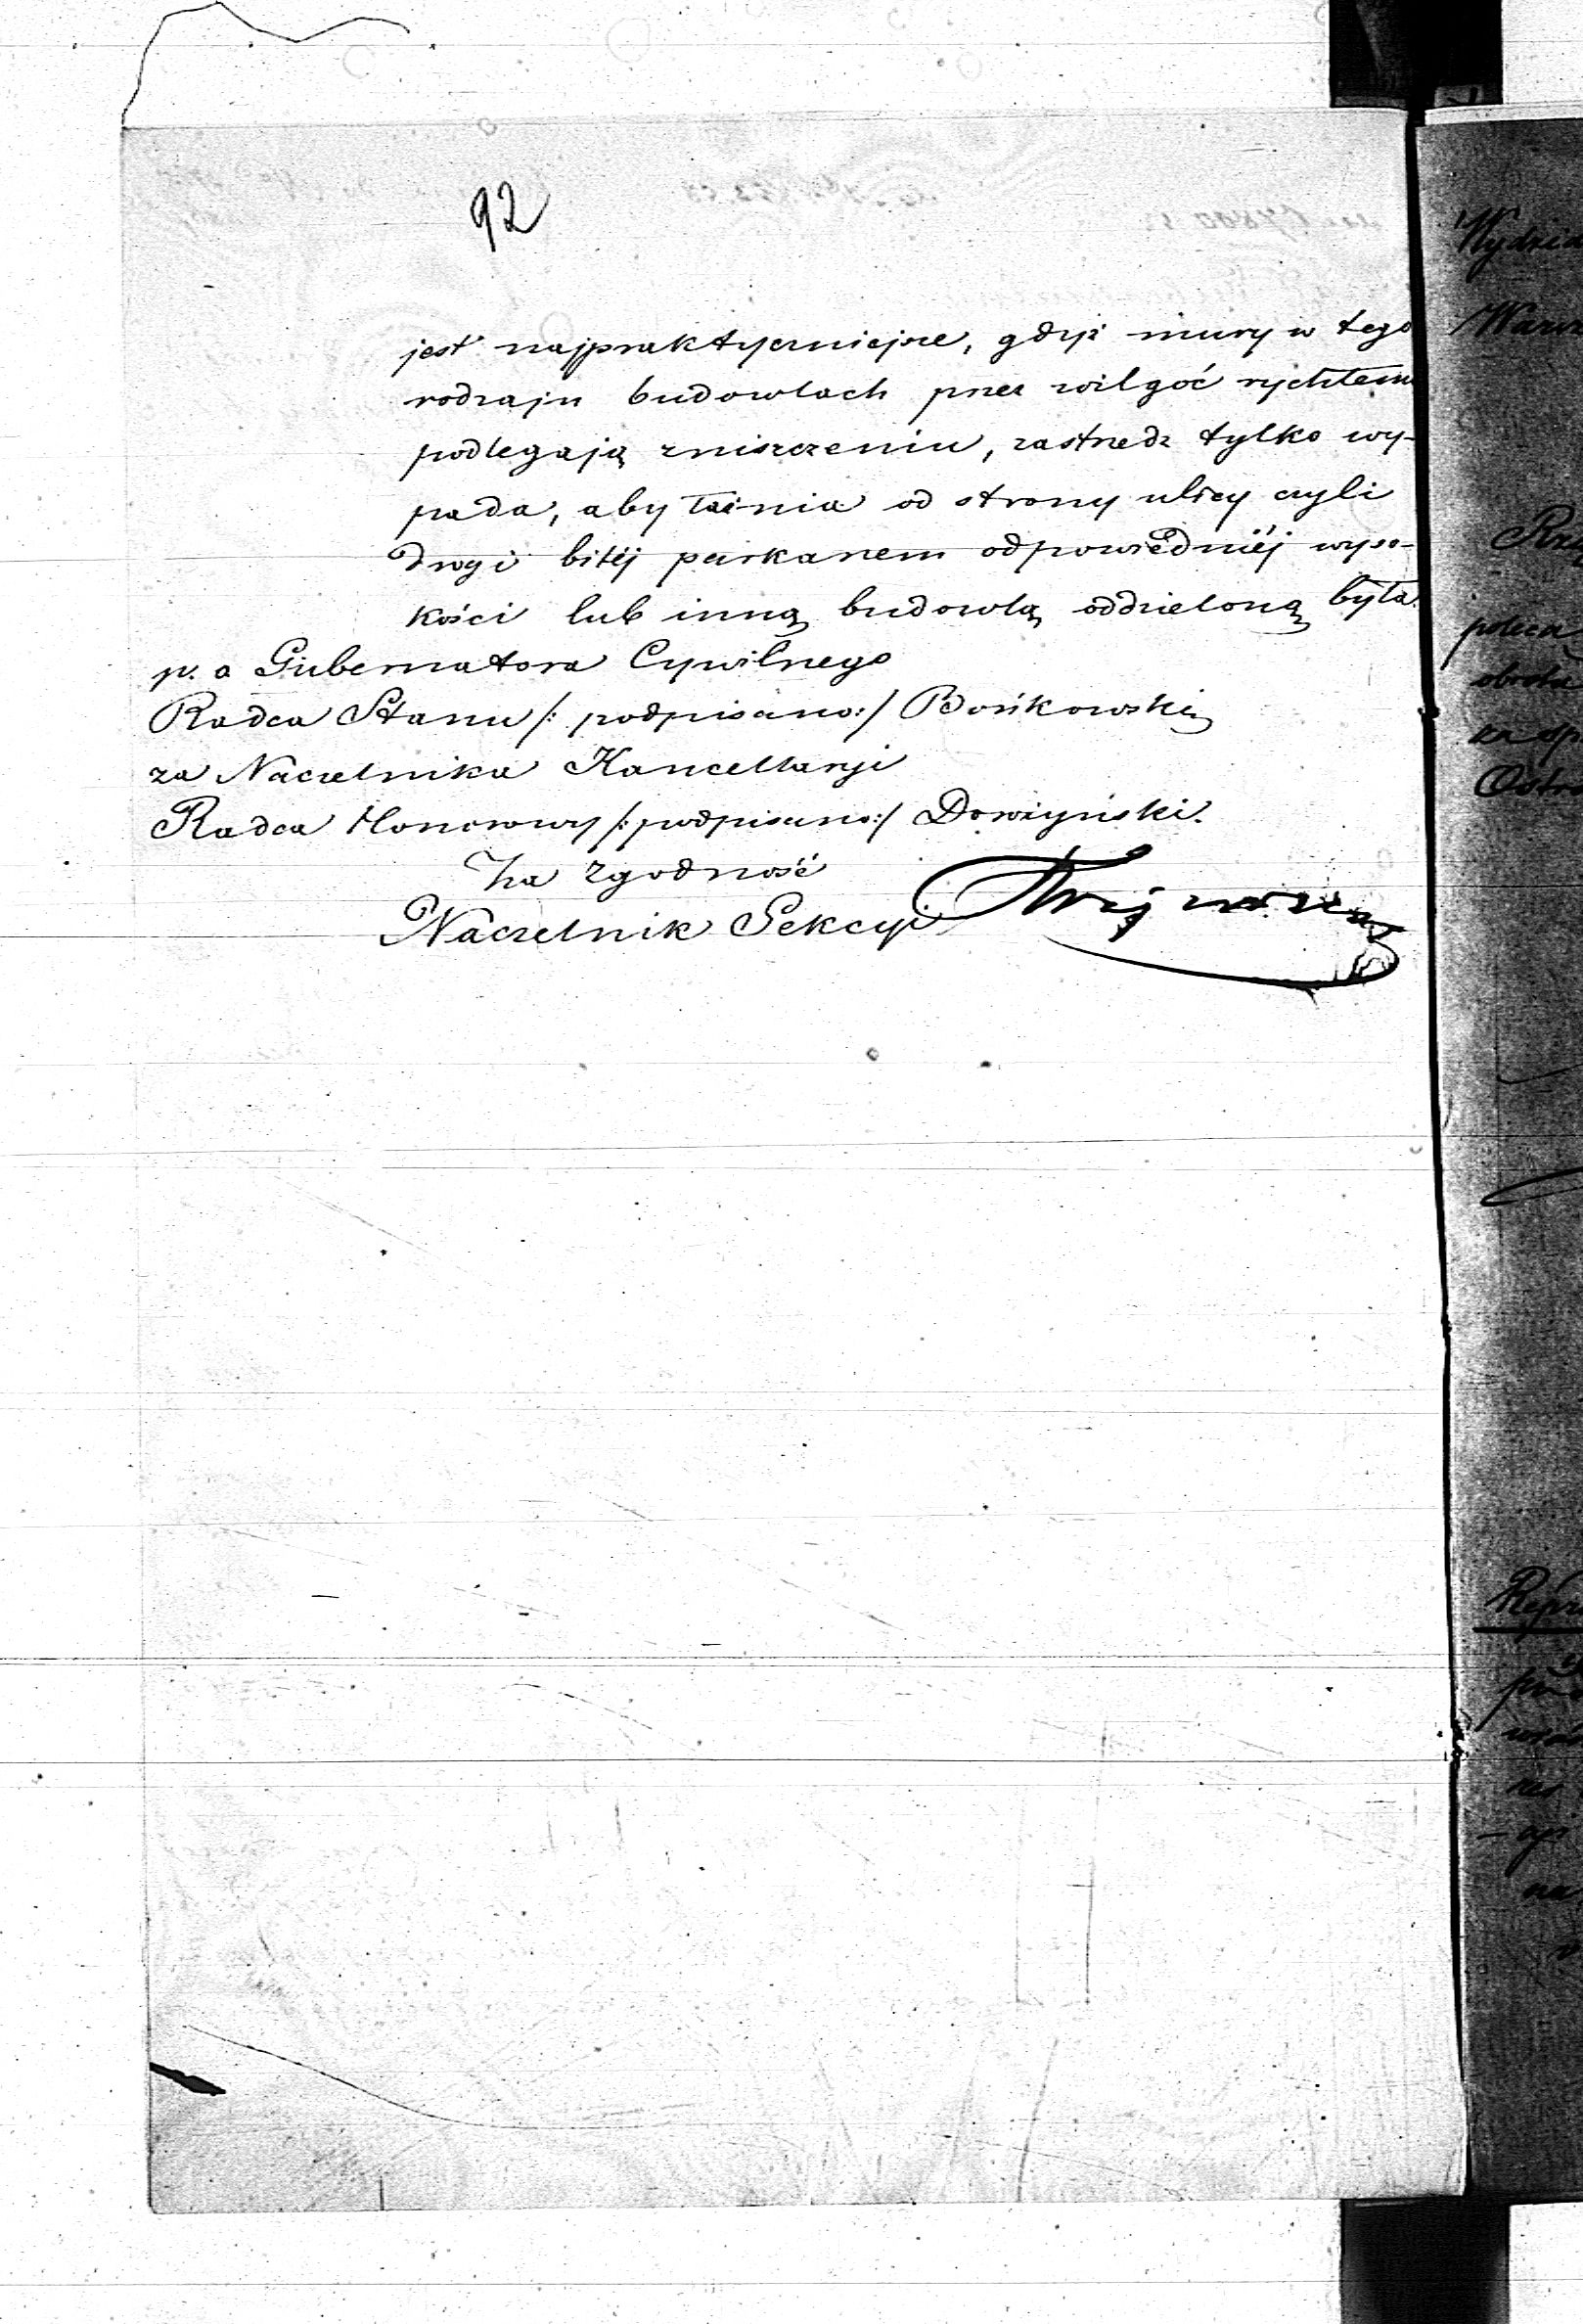 92
jest najpraktyczniejsze, gdyż mury w tego
rodzaju budowlach przez wilgoć rychłem
podlegają zniszczeniu, zastrzedz tylko wy-
pada, aby łaźnia od strony ulicy czyli
drogi bitéj parkanem odpowiedniéj wyso-
kości lub inną budowlą oddzieloną była.
p. o Gubernatora Cywilnego
Radca Stanu /: podpisano:/ Bośkowski
za Naczelnika Kancellaryi
Radca Honorowy /: podpisano:/ Dowżyński.
Za Zgodność
Naczelnik Sekcyi